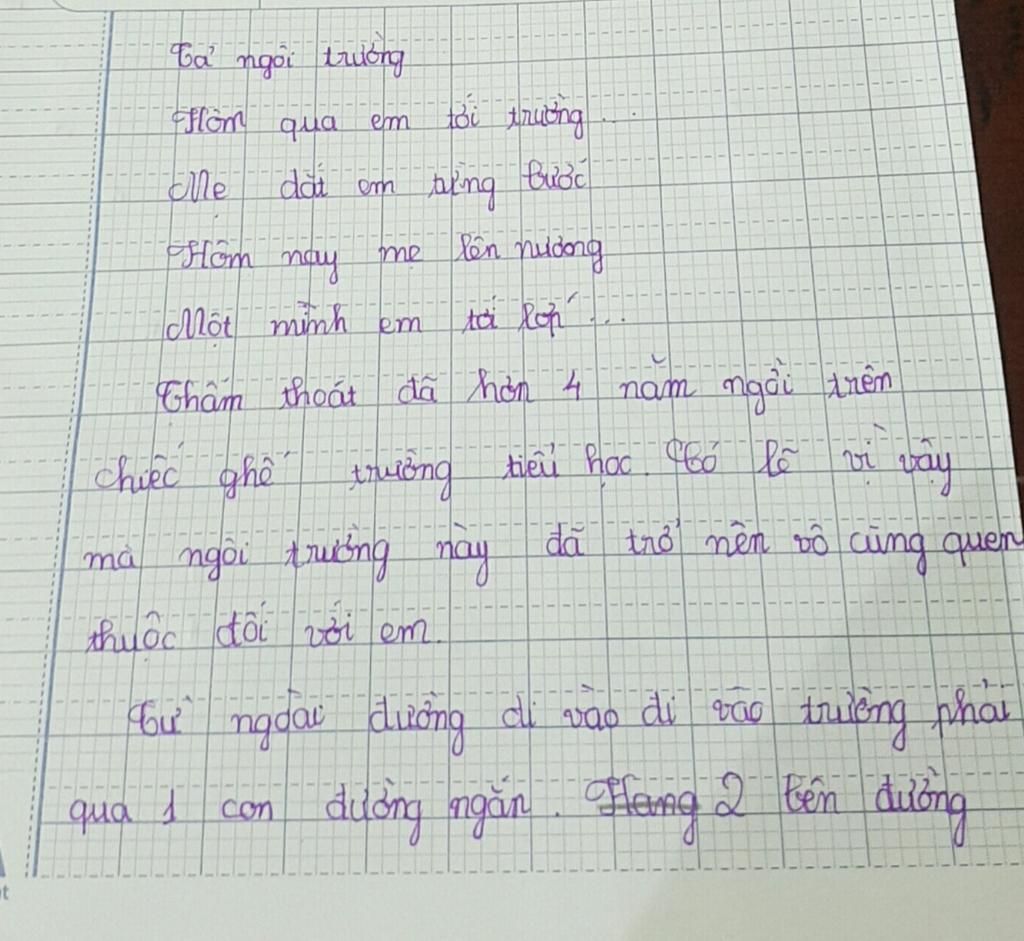 Tả ngôi trường
Hôm qua em tới trường...
Mẹ dắt em từng bước
Hôm nay mẹ lên nương
Một mình em tới lớp...
Thấm thoát đã hơn 4 năm ngồi trên
chiếc ghế trường tiểu học. Có lẽ vì vậy
mà ngôi trường này đã trở nên vô cùng quen
thuộc đối với em.
Từ ngoài đường đi vào đi vào trường phải
qua 1 con đường ngắn. Hang 2 bên đường